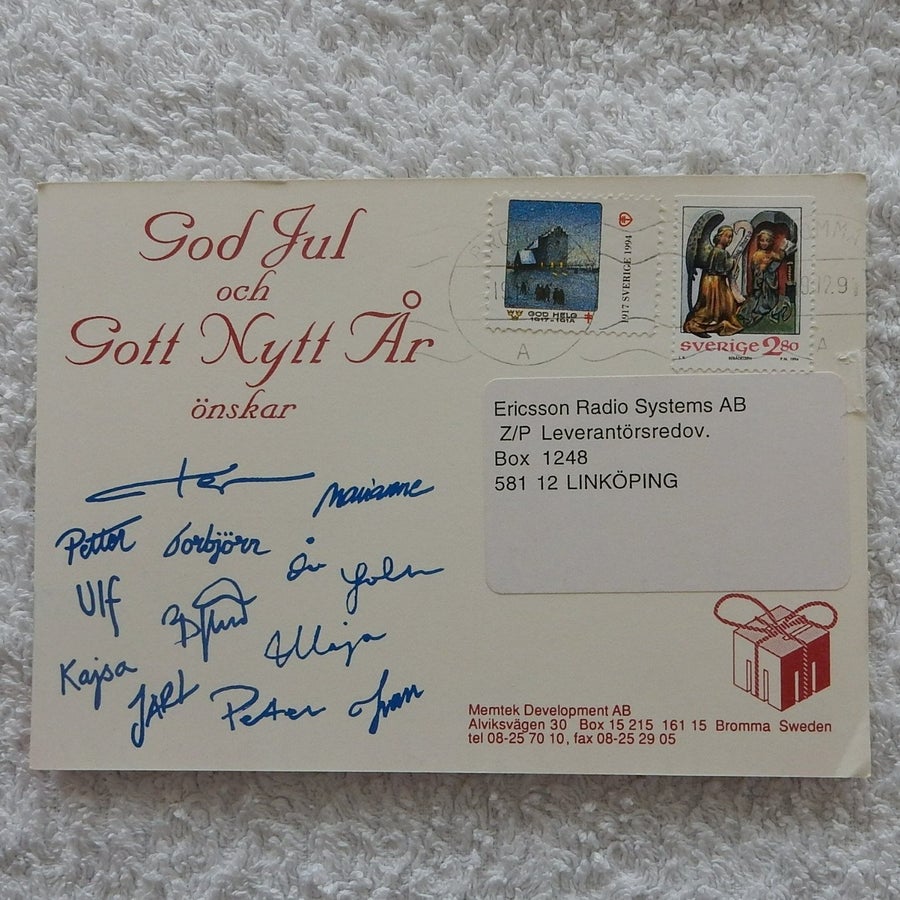 God Jul
och
Gott Nytt År
önskar
Marianne
Petter Torbjörn
Ulf
Kajsa
Maja
JARL
Peter
GOD HELG
1917-1918
1917 SVERIGE 1994
SVERIGE 280
A
Ericsson Radio Systems AB
Z/P Leverantörsredov.
Box 1248
581 12 LINKÖPING
Memtek Development AB
Alviksvägen 30 Box 15 215 161 15 Bromma Sweden
tel 08-25 70 10, fax 08-25 29 05